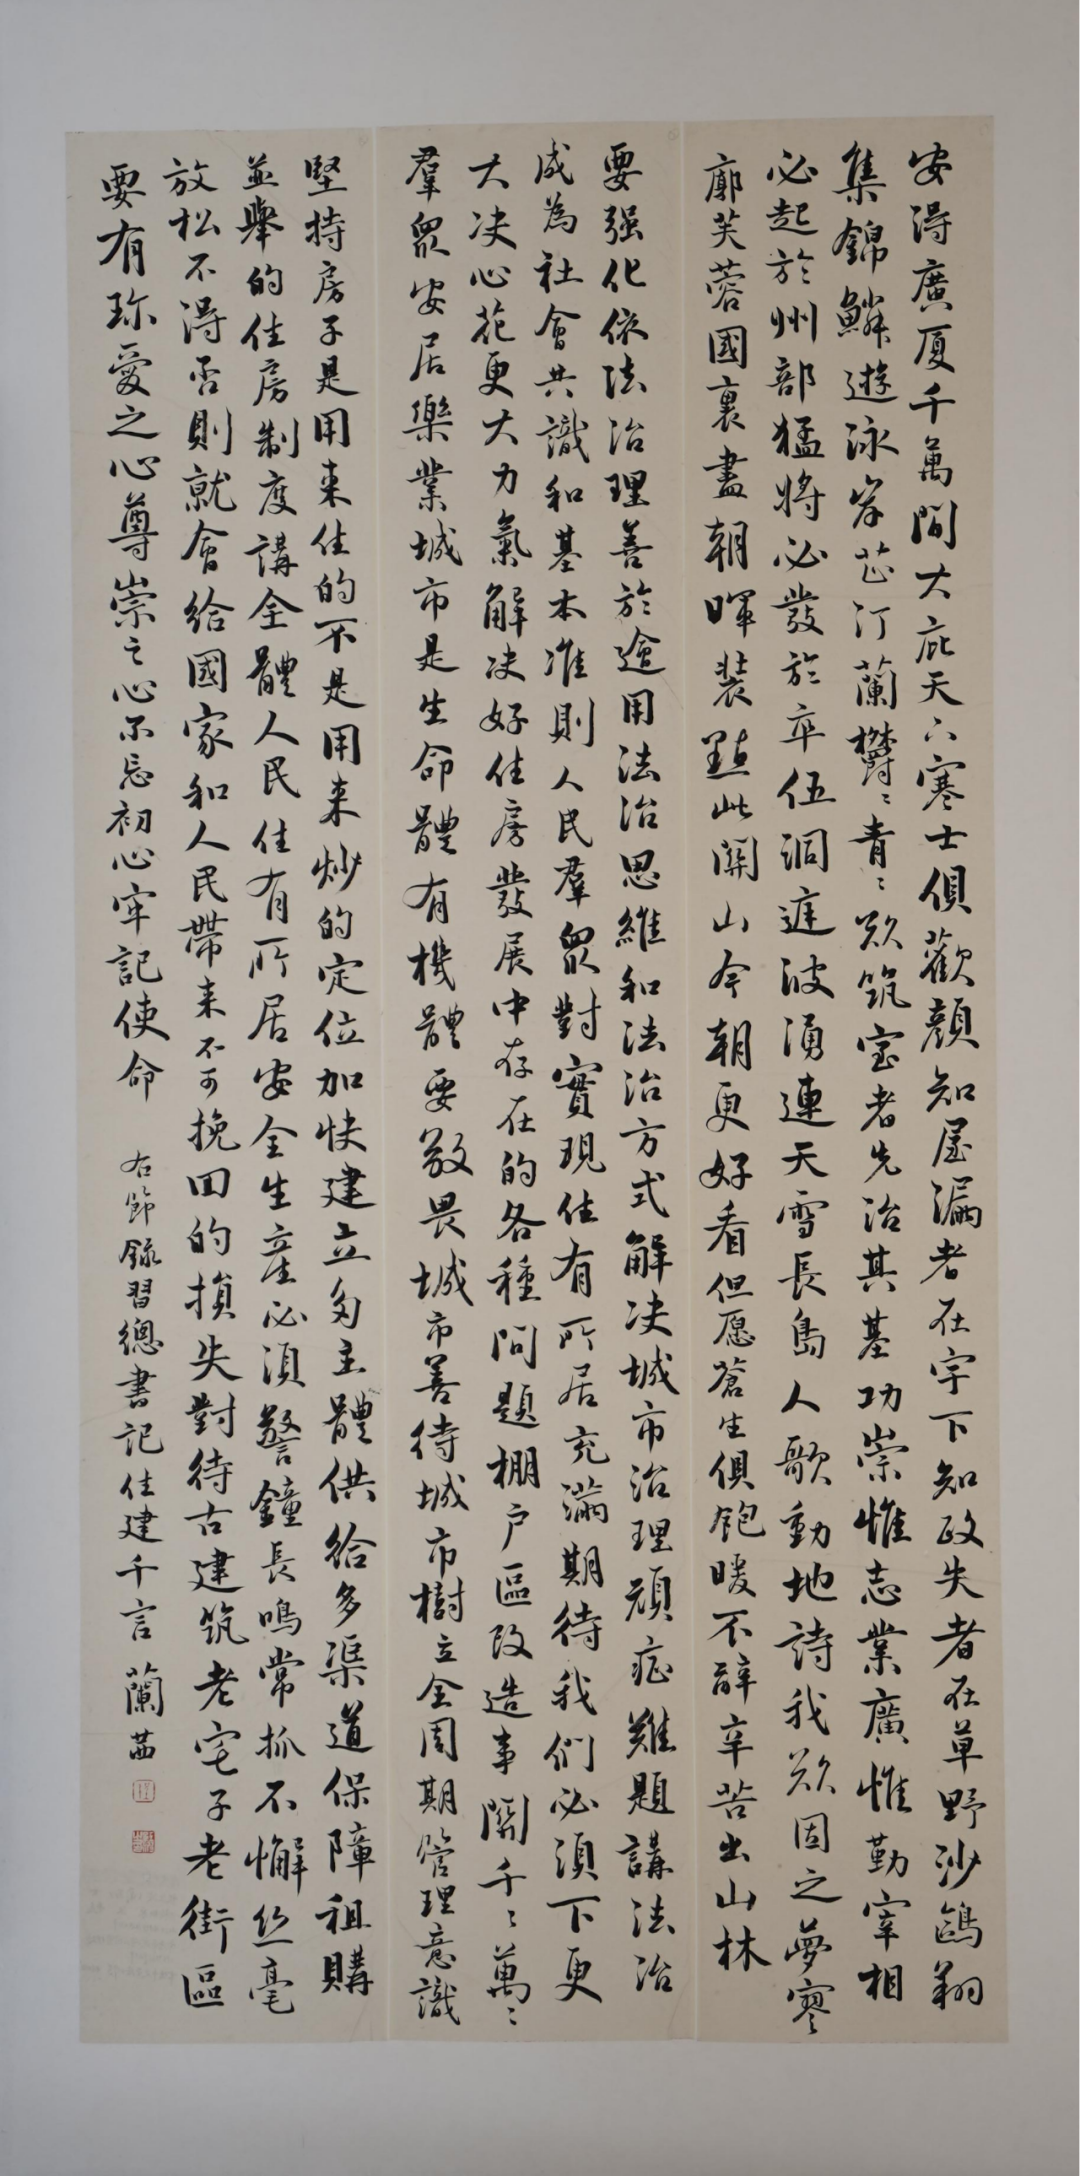 安得廣厦千萬間大庇天下寒士俱歡顔知屋漏者在宇下知政失者在草野沙鷗翔
集錦鱗遊泳岸芷汀蘭欝〻青〻欲筑室者先治其基功崇惟志業廣惟勤宰相
必起於州部猛將必發於卒伍洞庭波湧連天雪長島人歌動地詩我欲因之夢寥
廓芙蓉國裏盡朝暉裝點此關山今朝更好看但愿蒼生俱飽暖不辭辛苦出山林
要强化依法治理善於運用法治思維和法治方式解决城市治理頑症難題講法治
成為社會共識和基本准則人民羣衆對實現住有所居充滿期待我們必須下更
大决心花更大力氣解决好住房發展中存在的各種问題棚户區改造事關千〻萬〻
羣衆安居樂業城市是生命體有機體要敬畏城市善待城市樹立全周期管理意識
堅持房子是用来住的不是用来炒的定位加快建立多主體供给多渠道保障租購
並舉的住房制度講全體人民住有所居安全生産必須警鐘長鳴常抓不懈丝毫
放松不得否則就會给國家和人民帶来不可挽回的損失對待古建筑老宅子老街區
要有珍愛之心尊崇之心不忘初心牢記使命
右節錄習總書記住建千言 蘭茜